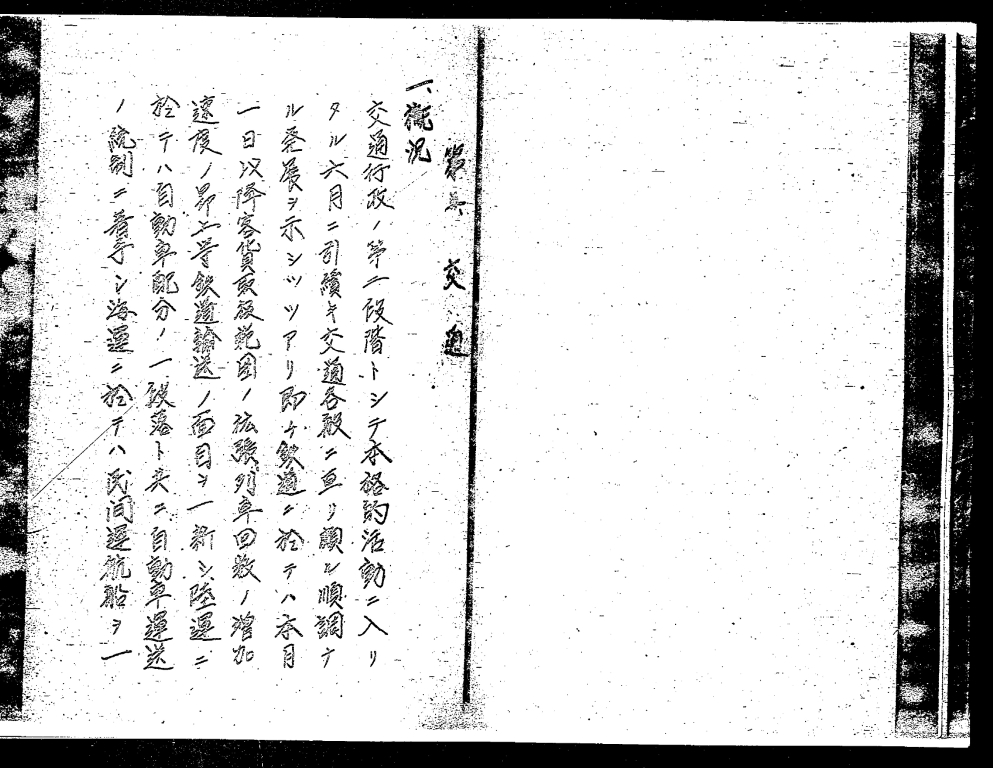 第 交通
一、概況
交通行政ノ第二段階トシテ本格的活動ニ入リ
タル六月ニ引続キ交通各般ニ亘リ頗ル順調ナ
ル発展ヲ示シツツアリ即チ鉄道ニ於テハ本月
一日以降客貨取扱範囲ノ拡張列車回数ノ増加
速度ノ昂上等鉄道輸送ノ面目ヲ一新シ陸運ニ
於テハ自動車配分ノ一段落ト共ニ自動車運送
ノ統制ニ着手シ海運ニ於テハ民間運航船ヲ一